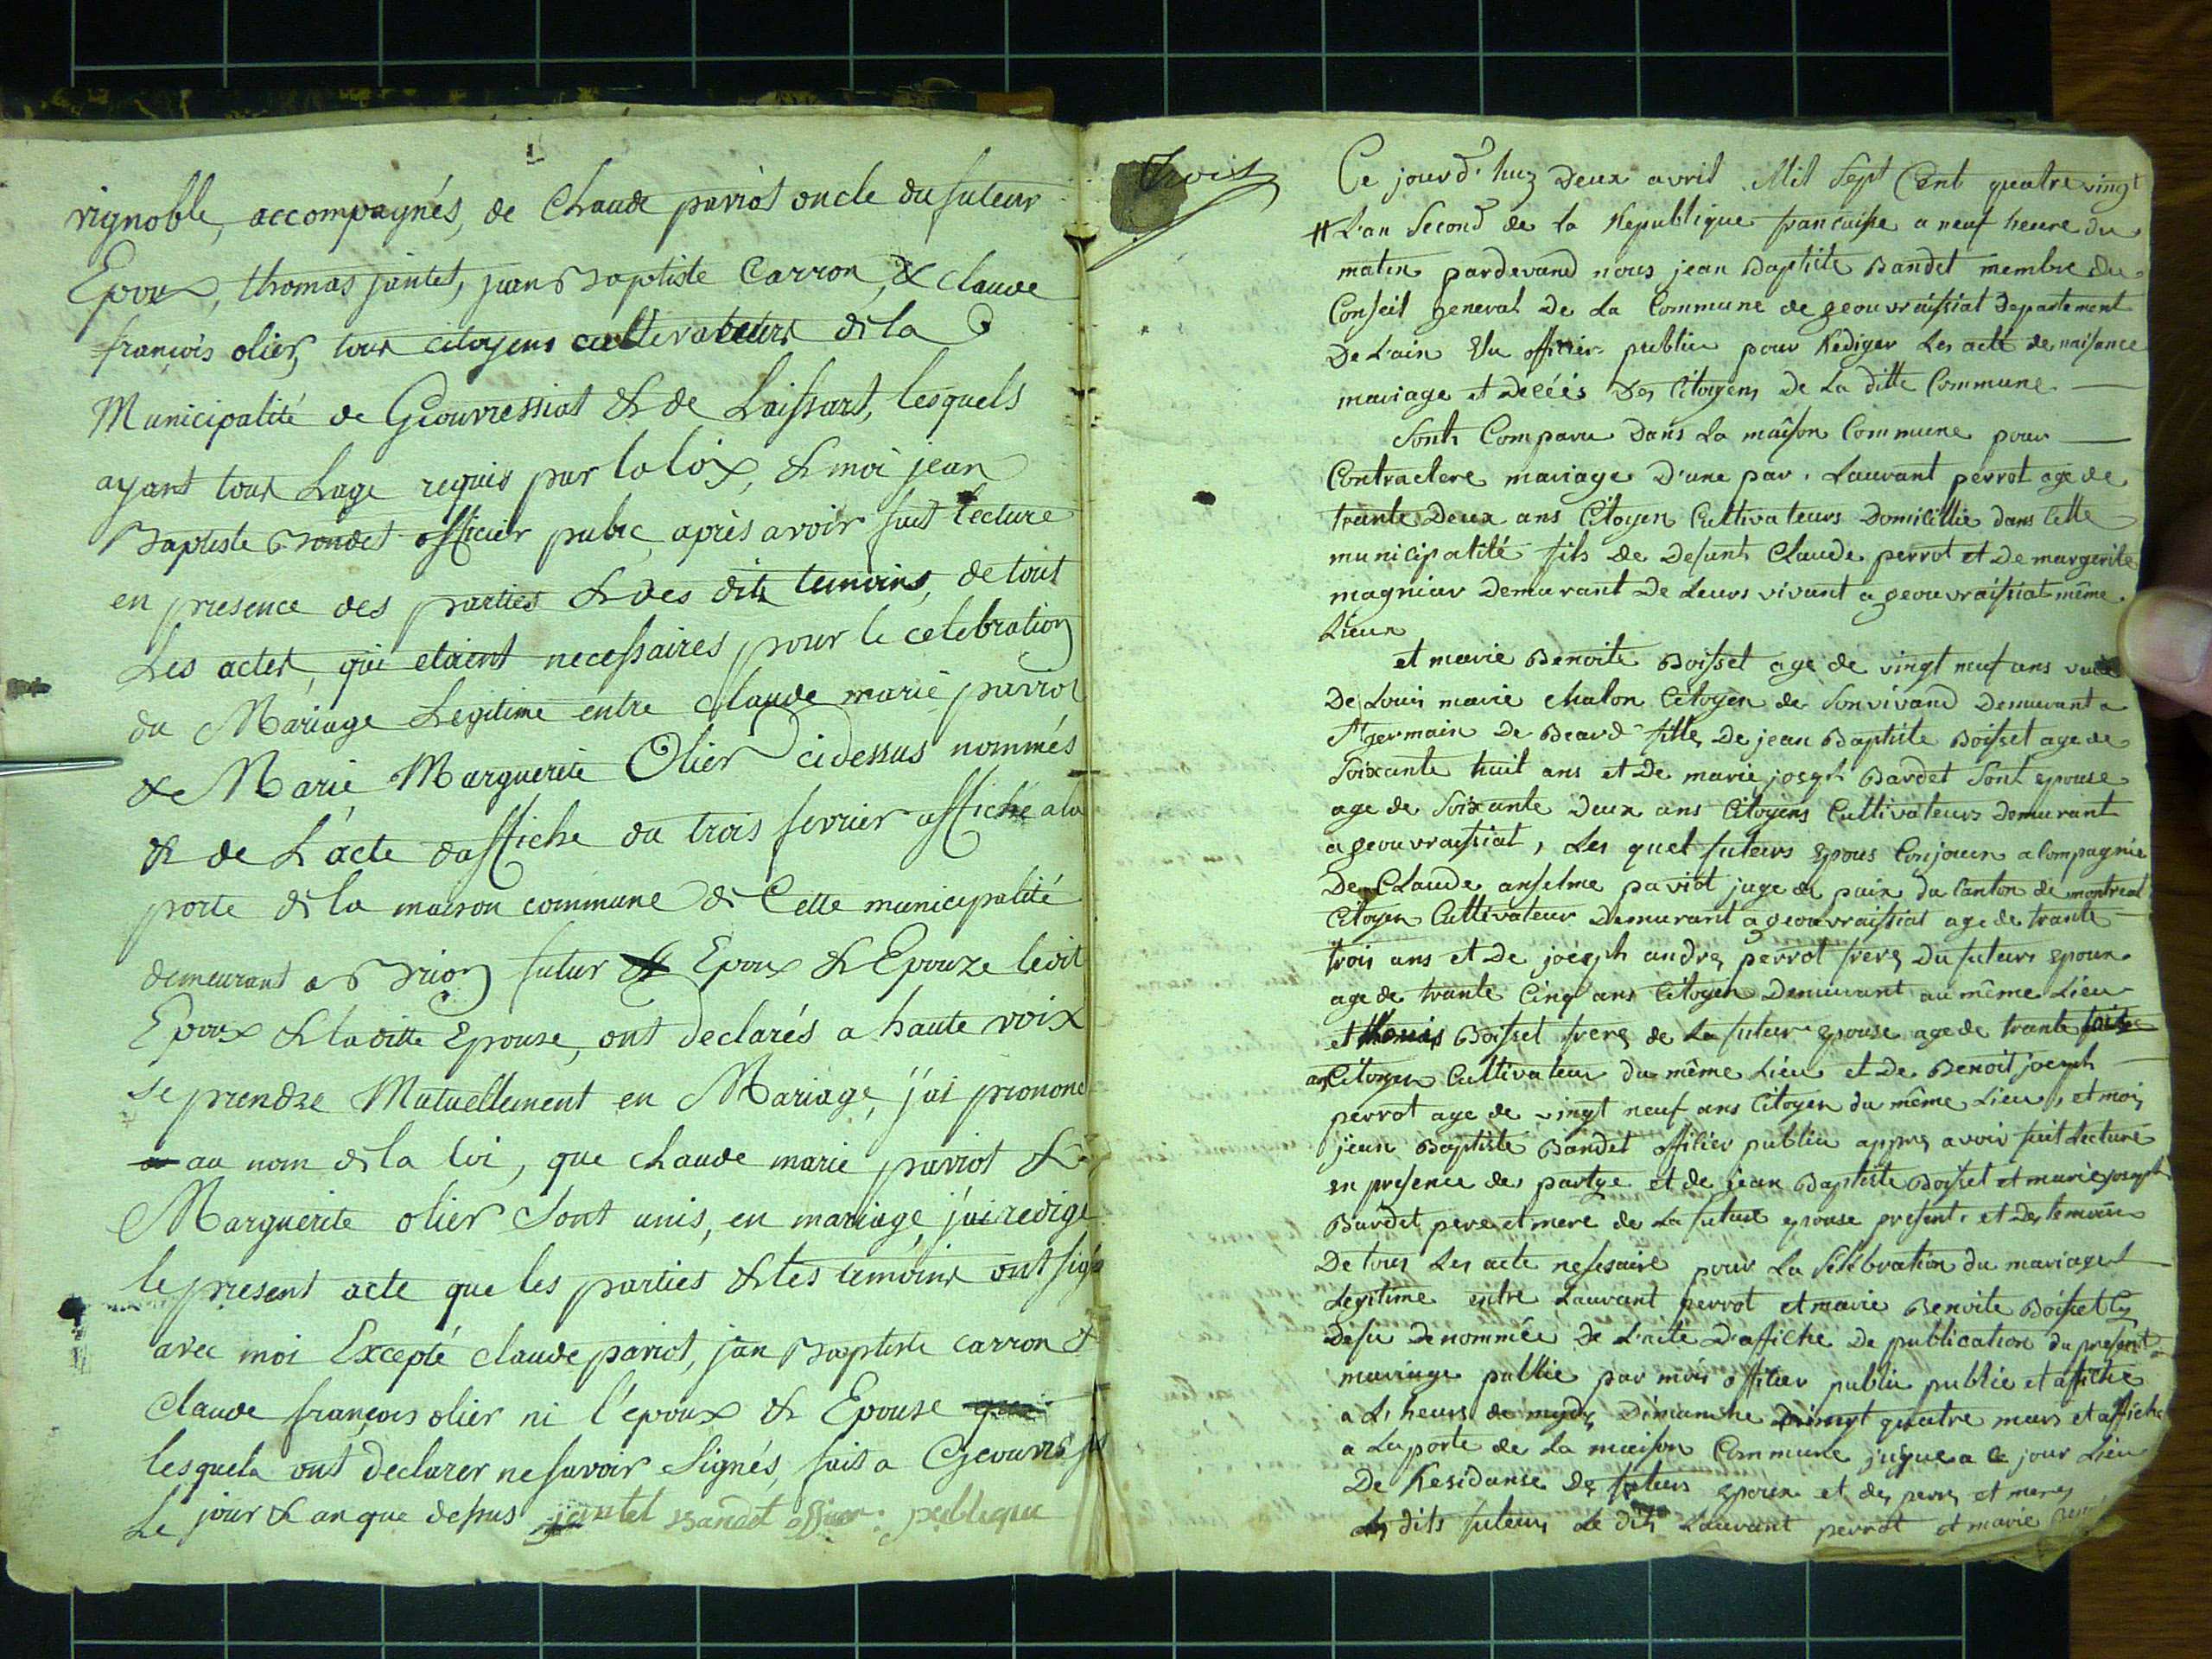 vignoble, accompagnés, de Claude paviot oncle du futeur
Epoux, thomas jantet, jean Baptiste Carron, & claude
françois olier, tous citoyens cultivateurs de la
Municipalité de Géouvressiat & de Laissart, lesquels
ayant tous Lage requis par la loix, & moi jean
Baptiste Bondet officier pubic, après avoir fait lecture
en presence des parties & des dits temoins, de tout
Les actes, qui etaient necessaires pour le celebration
du Mariage Legitime entre Claude marie paviot
& Marie Marguerite Olier cidessus nommés
& de L'acte daffiche du trois fevrier affiché a la
porte de la maison commune de Cette municipalité
demeurant a Brion futur Epoux & Epouze ledit
Epoux & la ditte Epouse, ont declarés a haute voix
se prendre Mutuellement en Mariage, j'ai prononc
au nom de la loi, que claude marie paviot &
Marguerite olier Sont unis, en mariage, j'ai redige
le present acte que les parties & les temoins ont sig
avec moi Excepté claude paviot, jan Baptiste carron &
Claude françois olier ni l'epoux & Epouse
lesquels ont declarer ne savoir Signés, fait a Geouvress
Le jour & an que dessus jantet Bandet officier publique
trois
Ce jourd'huy Deux avril Mil Sept Cent quatre vingt
# L'an Second de la Republique francaise a neuf heure du
matin pardevand nous jean Baptiste Bandet membre du
Conseil general De La Commune de geouvraissiat Departement
De L'ain Elu officier public pour Rediger Les acte de naisance
mariage et Décéés Des Citoyens De La ditte Commune
Sont Comparu Dans La maison Commune pour
Contractere mariage D'une par. Lauvant perrot age de
trante Deux ans Citoyen Cultivateurs Domicillie dans Cette
municipalité fils de Defunt Claude perrot et De margerite
magniar Demurant De Leurs vivant a geouvraissiat même
Lieux
et marie Benoite Boisset age de vingt neuf ans
De Louis marie chalon Citoyen de Sonvivand Demurant a
St germain De Beard fille De jean Baptiste Boisset age de
Soixante huit ans et De marie joseph Bardet Sont epouse
age de Soixante Deux ans Citoyens Cultivateurs Demurant
a geouvraissiat, Les quel futeurs Epous Conjouin acompagnie
De Claude anselme paviot juge de paix du Canton de montreal
Citoyen Cultivateur Demurant a geouvraissiat age de trante
trois ans et De joseph andre perrot frere Du futeurs epoux
age de trante Cinq ans Citoyen Demurant au même Lieu
et Boisset frere de La futeur epouse age de trante
ans Citoyen Cultivateur du même Lieu et De Benoit joseph
perrot age de vingt neuf ans Citoyen du même Lieu, et moi
jean Baptiste Bandet officier public appres avoir fait Lecture
en presence des partye et de jean Baptiste Boisset et marie joseph
Bardet pere et mere de La future epouse present. et Des temoin
De tous Les acte nessesaire pour La Sélébration du mariage
Legitime entre Lauvant perrot et marie Benoite Boisset Cy
Desu Denommée De L'acte D'affiche De publication du present
mariage publie par moi officier public publie et affiche
a L heurs de mydy Dimanche vingt quatre mars et affiche
a La porte de La maison Commune jusque a ce jour Lieu
De Residanse De futeurs epoux et des pere et mere
Les dits futeurs Le dit Lauvant perrot et marie